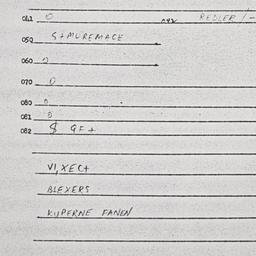 041 0 042 REDLER / -
050 S+MUREMACE
060 0
070 0
080 0
081 0
082 $ GF +
VI, XECT
BLEXERS
KUPERNE FANEN